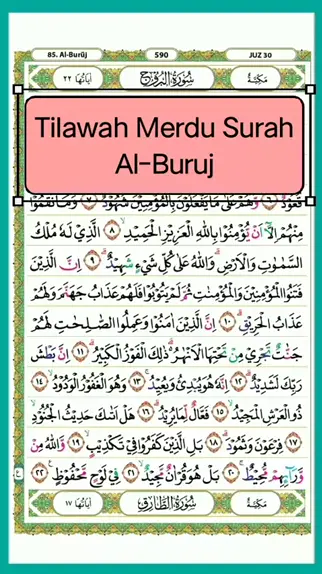 85. Al-Burūj 590 JUZ 30
مَكِّيَّةٌ سُوْرَةُ الْبُرُوْجِ اٰيَاتُهَا ٢٢
Tilawah Merdu Surah
Al-Buruj
قُعُوْدٌ ٦ وَّهُمْ عَلٰى مَا يَفْعَلُوْنَ بِالْمُؤْمِنِيْنَ شُهُوْدٌ ٧ وَمَا نَقَمُوْا
مِنْهُمْ اِلَّآ اَنْ يُّؤْمِنُوْا بِاللّٰهِ الْعَزِيْزِ الْحَمِيْدِ ٨ الَّذِيْ لَهٗ مُلْكُ
السَّمٰوٰتِ وَالْاَرْضِ وَاللّٰهُ عَلٰى كُلِّ شَيْءٍ شَهِيْدٌ ٩ اِنَّ الَّذِيْنَ
فَتَنُوا الْمُؤْمِنِيْنَ وَالْمُؤْمِنٰتِ ثُمَّ لَمْ يَتُوْبُوْا فَلَهُمْ عَذَابُ جَهَنَّمَ وَلَهُمْ
عَذَابُ الْحَرِيْقِ ١٠ اِنَّ الَّذِيْنَ اٰمَنُوْا وَعَمِلُوا الصّٰلِحٰتِ لَهُمْ
جَنّٰتٌ تَجْرِيْ مِنْ تَحْتِهَا الْاَنْهٰرُ ذٰلِكَ الْفَوْزُ الْكَبِيْرُ ١١ اِنَّ بَطْشَ
رَبِّكَ لَشَدِيْدٌ ١٢ اِنَّهٗ هُوَ يُبْدِئُ وَيُعِيْدُ ١٣ وَهُوَ الْغَفُوْرُ الْوَدُوْدُ ١٤
ذُو الْعَرْشِ الْمَجِيْدُ ١٥ فَعَّالٌ لِّمَا يُرِيْدُ ١٦ هَلْ اَتٰىكَ حَدِيْثُ الْجُنُوْدِ
١٧ فِرْعَوْنَ وَثَمُوْدَ ١٨ بَلِ الَّذِيْنَ كَفَرُوْا فِيْ تَكْذِيْبٍ ١٩ وَّاللّٰهُ مِنْ
وَّرَاۤىِٕهِمْ مُّحِيْطٌ ٢٠ بَلْ هُوَ قُرْاٰنٌ مَّجِيْدٌ ٢١ فِيْ لَوْحٍ مَّحْفُوْظٍ ٢٢
مَكِّيَّةٌ سُوْرَةُ الطَّارِقِ اٰيَاتُهَا ١٧